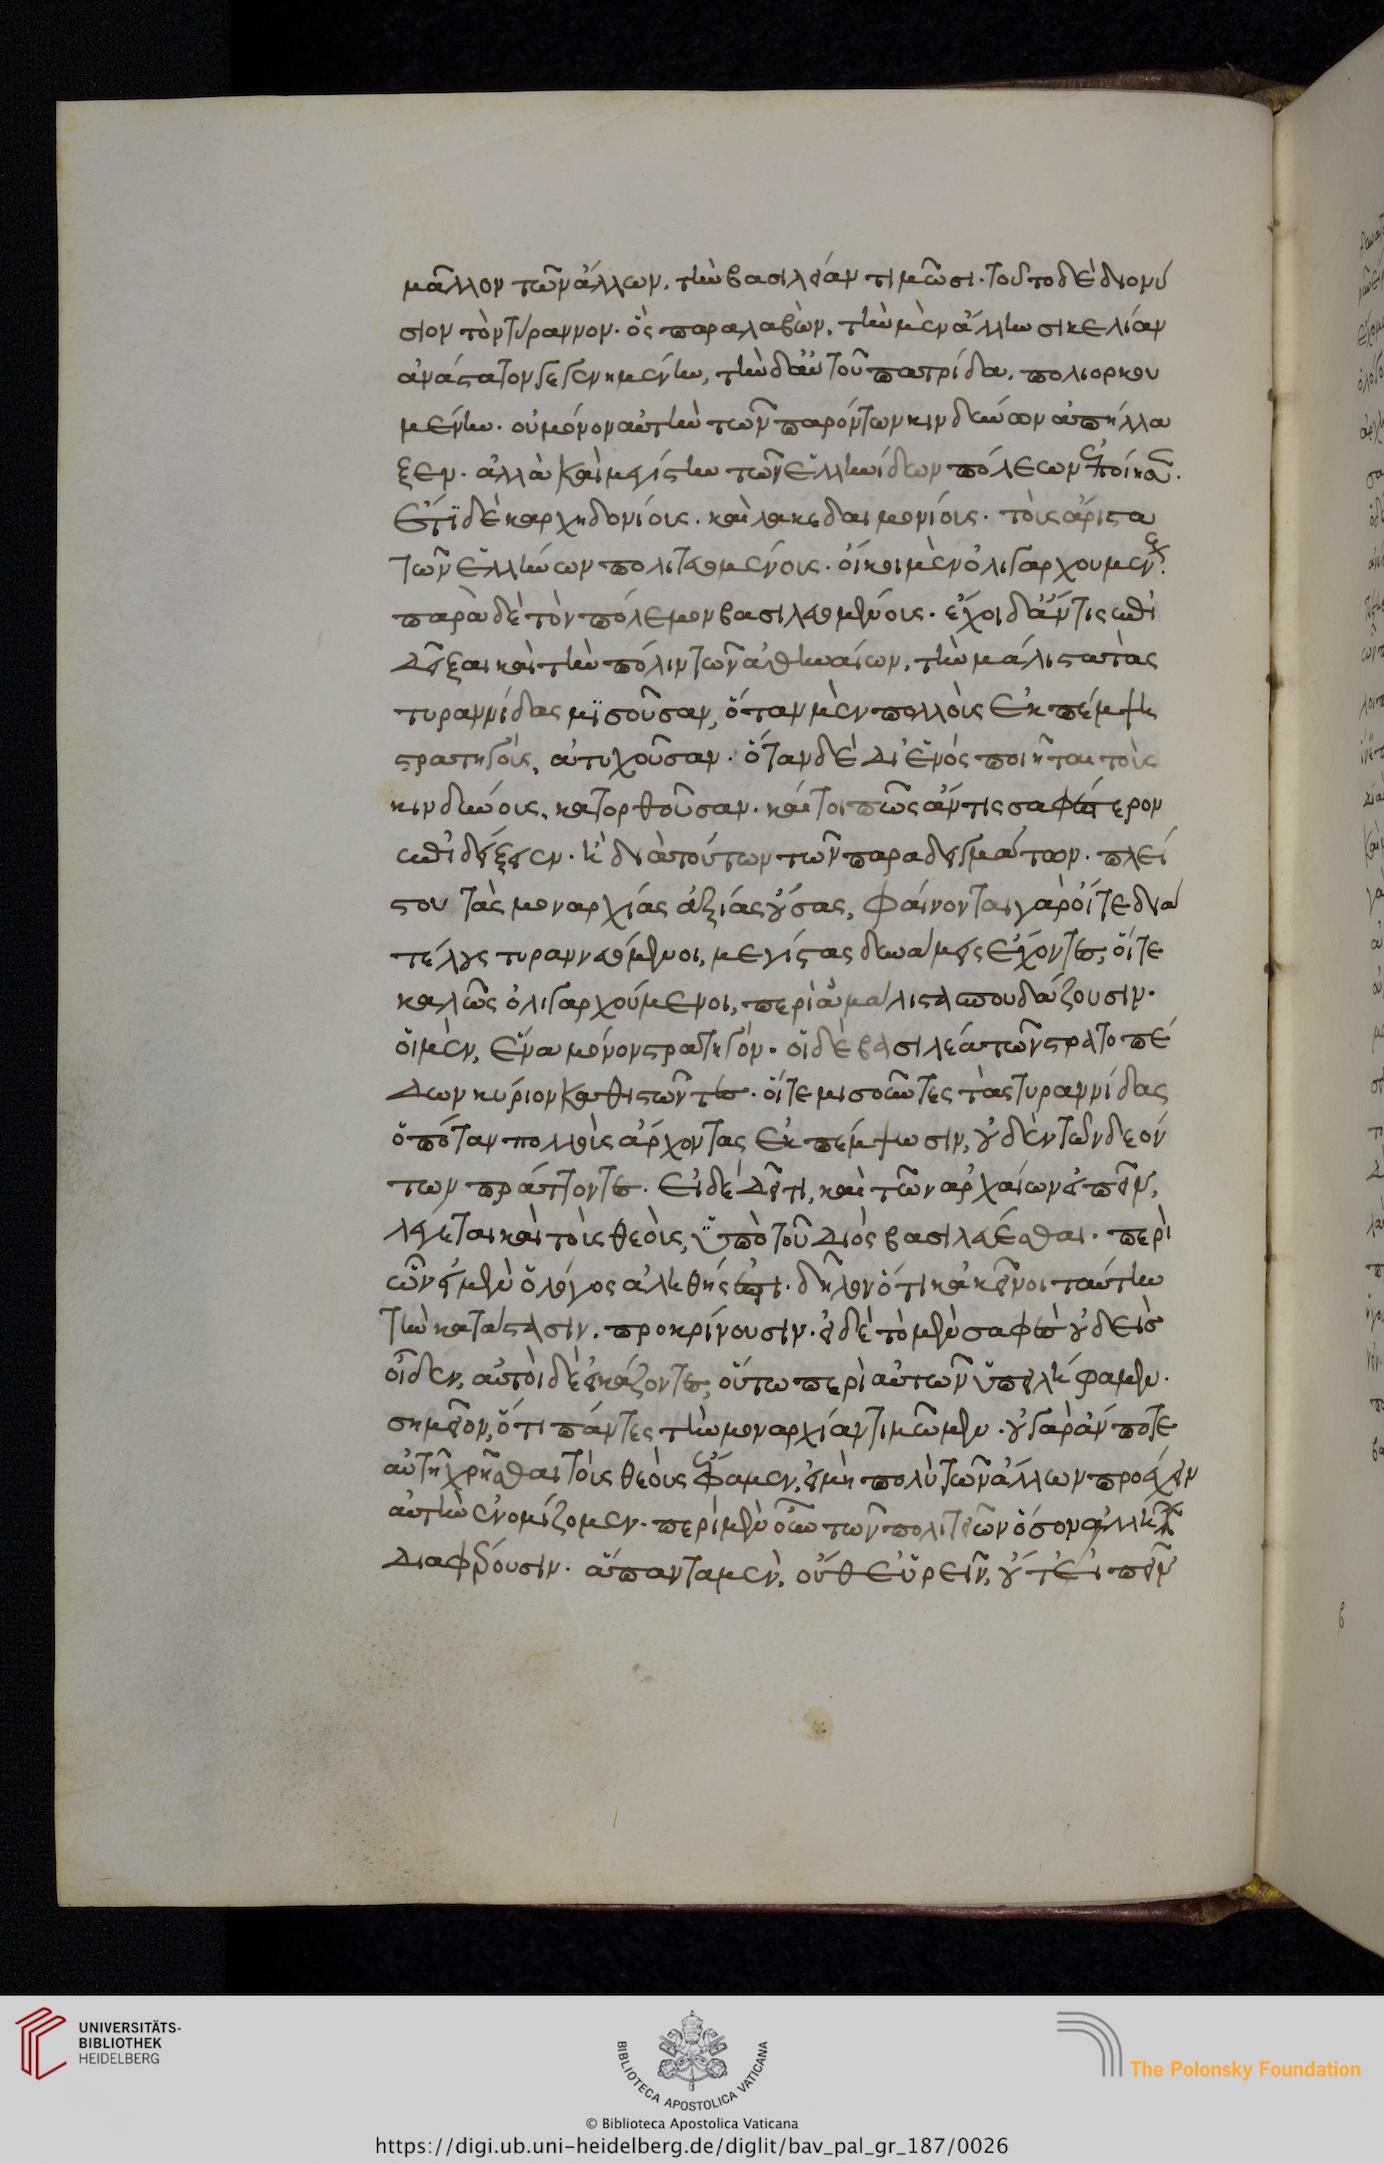 μᾶλλον τῶν ἄλλων. τὴν βασιλείαν τιμῶσι. τοῦτο δὲ διονύ
σιον τὸν τύραννον. ὃς παραλαβὼν, τὴν μὲν ἄλλην σικελίαν
ἀνάστατον γεγενημένην, τὴν δ' αὑτοῦ πατρίδα, πολιορκου
μένην. οὐ μόνον αὐτὴν τῶν παρόντων κινδύνων ἀπήλλα
ξεν. ἀλλὰ καὶ μεγίστην τῶν ἑλληνίδων πόλεων ἐποίησεν.
ἔτι δὲ καρχηδονίους. καὶ λακεδαιμονίους. τοὺς ἄριστα
τῶν ἑλλήνων πολιτευομένους. οἴκοι μὲν ὀλιγαρχουμένους.
παρὰ δὲ τὸν πόλεμον βασιλευομένους. ἔχοι δ' ἄν τις ἐπι
δεῖξαι καὶ τὴν πόλιν τῶν ἀθηναίων, τὴν μάλιστα τὰς
τυραννίδας μισοῦσαν, ὅταν μὲν πολλοὺς ἐκπέμψῃ
στρατηγοὺς, ἀτυχοῦσαν. ὅταν δὲ δι' ἑνός ποιῆται τοὺς
κινδύνους, κατορθοῦσαν. καίτοι πῶς ἄν τις σαφέστερον
ἐπιδείξειεν. ἢ διὰ τούτων τῶν παραδειγμάτων. πλεί
στου τὰς μοναρχίας ἀξίας οὔσας, φαίνονται γὰρ οἵ τε διὰ
τέλους τυραννευόμενοι, μεγίστας δυνάμεις ἔχοντες, οἵ τε
καλῶς ὀλιγαρχούμενοι, περὶ ἃ μάλιστα σπουδάζουσιν.
οἱ μὲν, ἕνα μόνον στρατηγόν. οἱ δὲ βασιλέα τῶν στρατοπέ
δων κύριον καθιστῶντες. οἵ τε μισοῦντες τὰς τυραννίδας
ὁπόταν πολλοὺς ἄρχοντας ἐκπέμψωσιν, οὐδὲν τῶν δεόν
των πράττοντες. εἰ δὲ δεῖ τι, καὶ τῶν ἀρχαίων εἰπεῖν,
λέγεται καὶ τοὺς θεοὺς, ὑπὸ τοῦ διὸς βασιλεύεσθαι. περὶ
ὧν εἰ μὲν ὁ λόγος ἀληθής ἐστι. δῆλον ὅτι κἀκεῖνοι ταύτην
τὴν κατάστασιν. προκρίνουσιν. εἰ δὲ τὸ μὲν σαφὲς οὐδεὶς
οἶδεν, αὐτοὶ δὲ εἰκάζοντες, οὕτω περὶ αὐτῶν ὑπειλήφαμεν.
σημεῖον, ὅτι πάντες τὴν μοναρχίαν τιμῶμεν. οὐ γὰρ ἄν ποτε
αὐτῇ χρῆσθαι τοὺς θεοὺς ἔφαμεν, εἰ μὴ πολὺ τῶν ἄλλων προέχειν
αὐτὴν ἐνομίζομεν. περὶ μὲν οὖν τῶν πολιτειῶν ὅσον ἀλλήλων
διαφέρουσιν. ἅπαντα μὲν, οὔθ' εὑρεῖν, οὔτ' εἰπεῖν
UNIVERSITÄTS-
BIBLIOTHEK
HEIDELBERG
BIBLIOTECA APOSTOLICA VATICANA
The Polonsky Foundation
© Biblioteca Apostolica Vaticana
https://digi.ub.uni-heidelberg.de/diglit/bav_pal_gr_187/0026